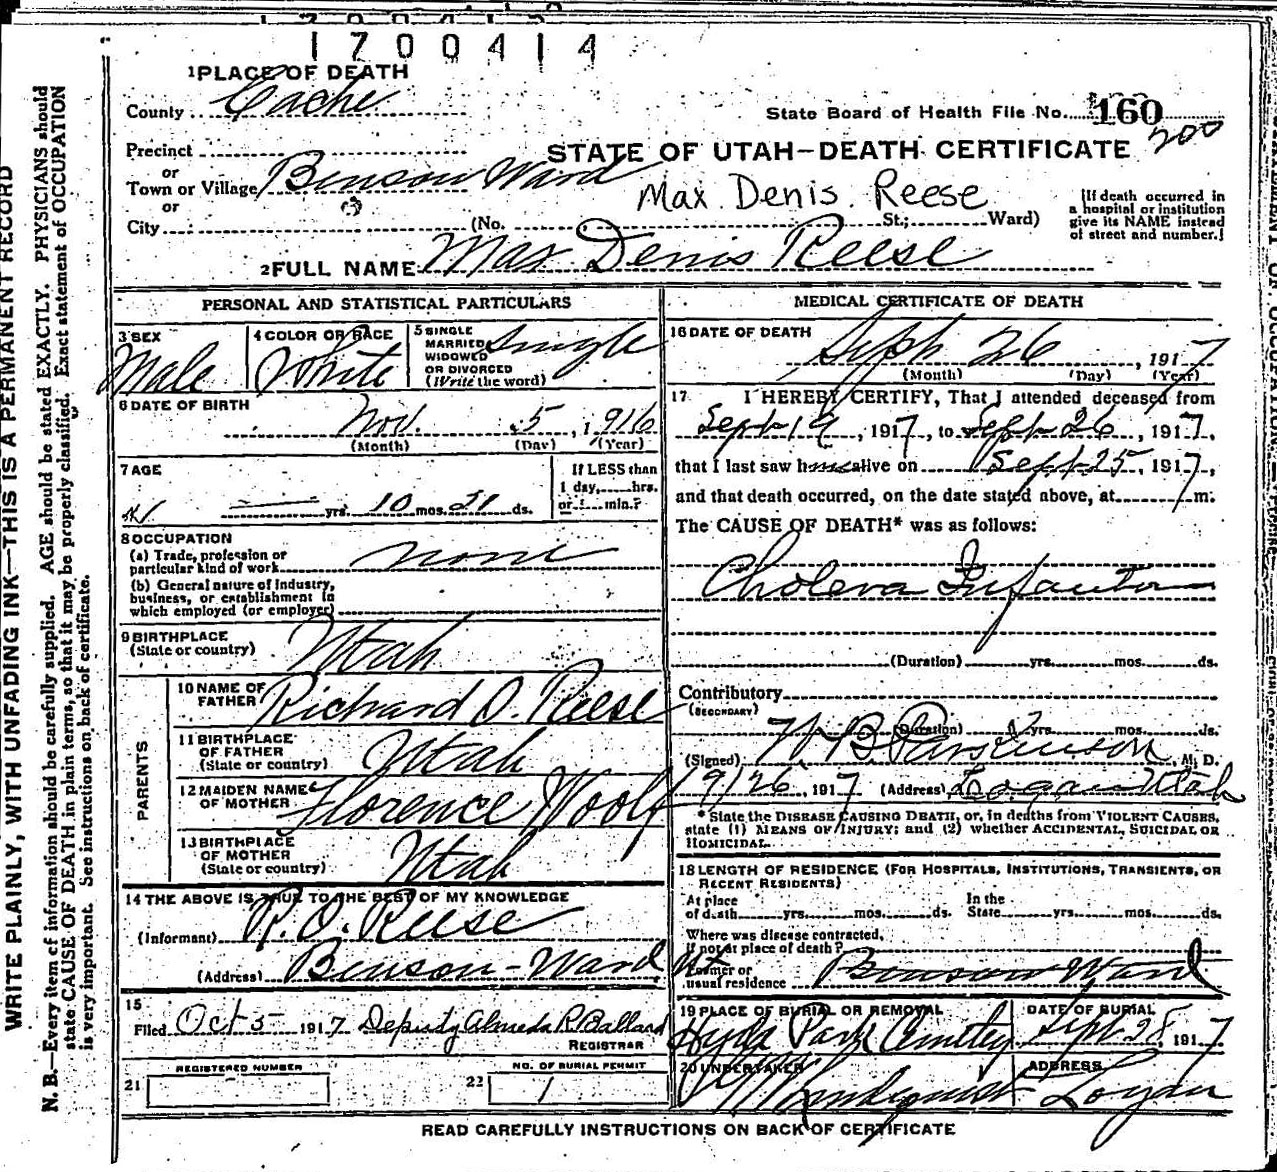 1700414
1 PLACE OF DEATH
County Cache
State Board of Health File No. 160
200
Precinct
or
STATE OF UTAH—DEATH CERTIFICATE
Town or Village Benson Ward
or
Max Denis Reese
City (No. St.; Ward)
[If death occurred in
a hospital or institution
give its NAME instead
of street and number.]
2 FULL NAME Max Denis Reese
PERSONAL AND STATISTICAL PARTICULARS
3 SEX
Male
4 COLOR OR RACE
White
5 SINGLE
MARRIED,
WIDOWED
OR DIVORCED
(Write the word)
Single
6 DATE OF BIRTH
Nov. 5, 1916
(Month) (Day) (Year)
7 AGE
yrs. 10 mos. 21 ds.
If LESS than
1 day, hrs.
or min.?
8 OCCUPATION
(a) Trade, profession or
particular kind of work none
(b) General nature of Industry,
business, or establishment in
which employed (or employer)
9 BIRTHPLACE
(State or country) Utah
PARENTS
10 NAME OF
FATHER Richard O. Reese
11 BIRTHPLACE
OF FATHER
(State or country) Utah
12 MAIDEN NAME
OF MOTHER Florence Woolf
13 BIRTHPLACE
OF MOTHER
(State or country) Utah
14 THE ABOVE IS TRUE TO THE BEST OF MY KNOWLEDGE
(Informant) R. O. Reese
(Address) Benson-Ward
15
Filed Oct 5 1917 Deputy Almeda R Ballard
REGISTRAR
REGISTERED NUMBER
21
NO. OF BURIAL PERMIT
22 1
MEDICAL CERTIFICATE OF DEATH
16 DATE OF DEATH
Sept 26, 1917
(Month) (Day) (Year)
17 I HEREBY CERTIFY, That I attended deceased from
Sept 19, 1917, to Sept 26, 1917,
that I last saw him alive on Sept 25, 1917,
and that death occurred, on the date stated above, at m.
The CAUSE OF DEATH* was as follows:
Cholera Infantum
(Duration) yrs. mos. ds.
Contributory
(SECONDARY)
(Duration) yrs. mos. ds.
(Signed) W. B. Parkinson, M. D.
9/26, 1917 (Address) Logan Utah
* State the DISEASE CAUSING DEATH, or, in deaths from VIOLENT CAUSES,
state (1) MEANS OF INJURY; and (2) whether ACCIDENTAL, SUICIDAL OR
HOMICIDAL.
18 LENGTH OF RESIDENCE (FOR HOSPITALS, INSTITUTIONS, TRANSIENTS, OR
RECENT RESIDENTS)
At place
of death yrs. mos. ds.
In the
State yrs. mos. ds.
Where was disease contracted,
If not at place of death?
Former or
usual residence Benson Ward
19 PLACE OF BURIAL OR REMOVAL
Hyde Park Cemetery
DATE OF BURIAL
Sept 28, 1917
20 UNDERTAKER
Lindquist
ADDRESS
Logan
READ CAREFULLY INSTRUCTIONS ON BACK OF CERTIFICATE
WRITE PLAINLY, WITH UNFADING INK—THIS IS A PERMANENT RECORD
N. B.—Every item of information should be carefully supplied. AGE should be stated EXACTLY. PHYSICIANS should
state CAUSE OF DEATH in plain terms, so that it may be properly classified. Exact statement of OCCUPATION
is very important. See instructions on back of certificate.